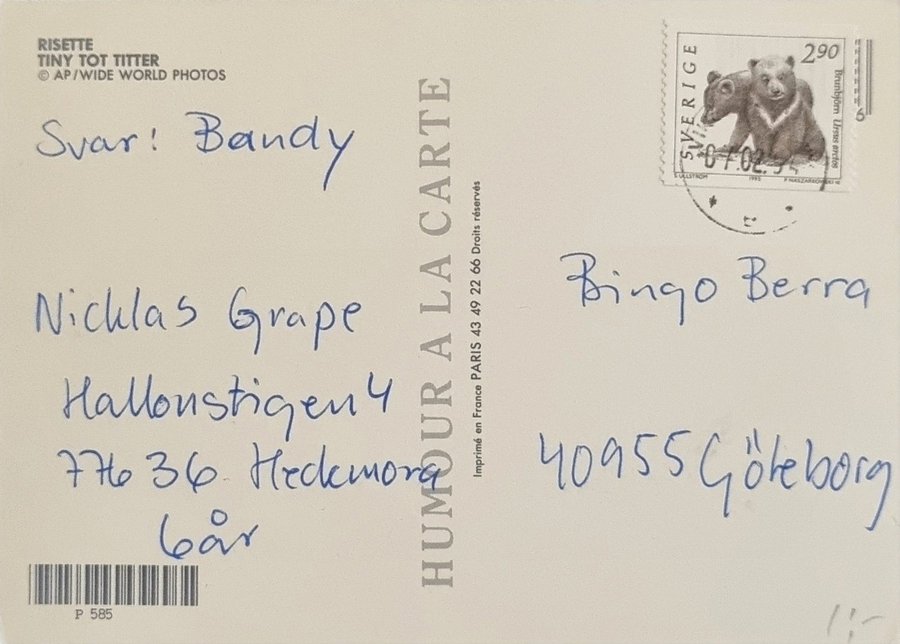 RISETTE
TINY TOT TITTER
© AP/WIDE WORLD PHOTOS
Svar: Bandy
Nicklas Grape
Hallonstigen 4
776 36 Hedemora
6år
P 585
HUMOUR A LA CARTE
Imprimé en France PARIS 43 49 22 66 Droits réservés
SVERIGE
290
Brunbjörn Ursus arctos
1993
Bingo Berra
40955 Göteborg
1:-